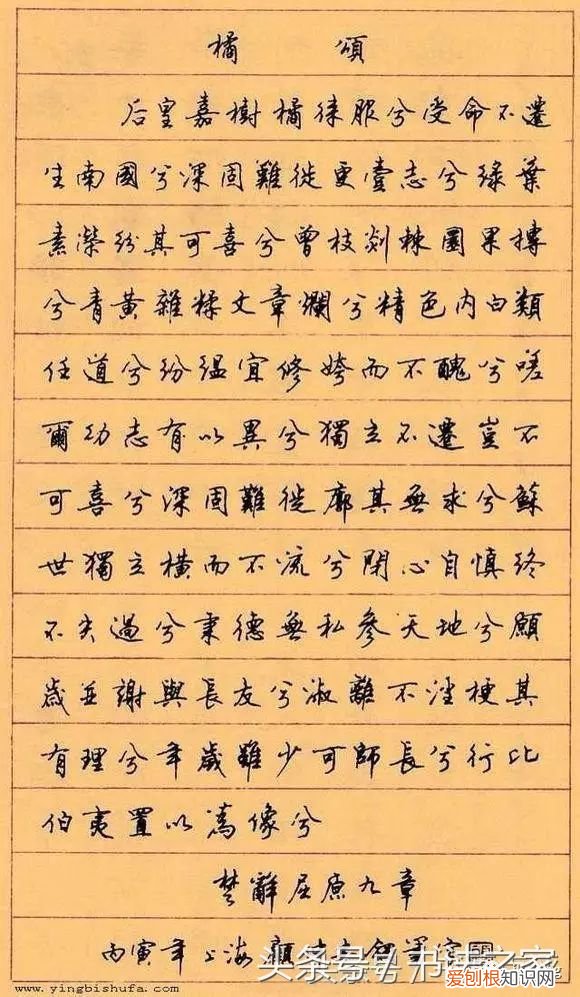 橘頌
后皇嘉樹橘徠服兮受命不遷
生南國兮深固難徙更壹志兮綠葉
素榮紛其可喜兮曾枝剡棘圜果摶
兮青黃雜糅文章爛兮精色內白類
任道兮紛縕宜修姱而不醜兮嗟
爾幼志有以異兮獨立不遷豈不
可喜兮深固難徙廓其無求兮蘇
世獨立橫而不流兮閉心自慎終
不失過兮秉德無私參天地兮願
歲並謝與長友兮淑離不淫梗其
有理兮年歲雖少可師長兮行比
伯夷置以為像兮
楚辭屈原九章
丙寅年上海
头条号 书法之家
爱刨根知识网
www.yingbishufa.com